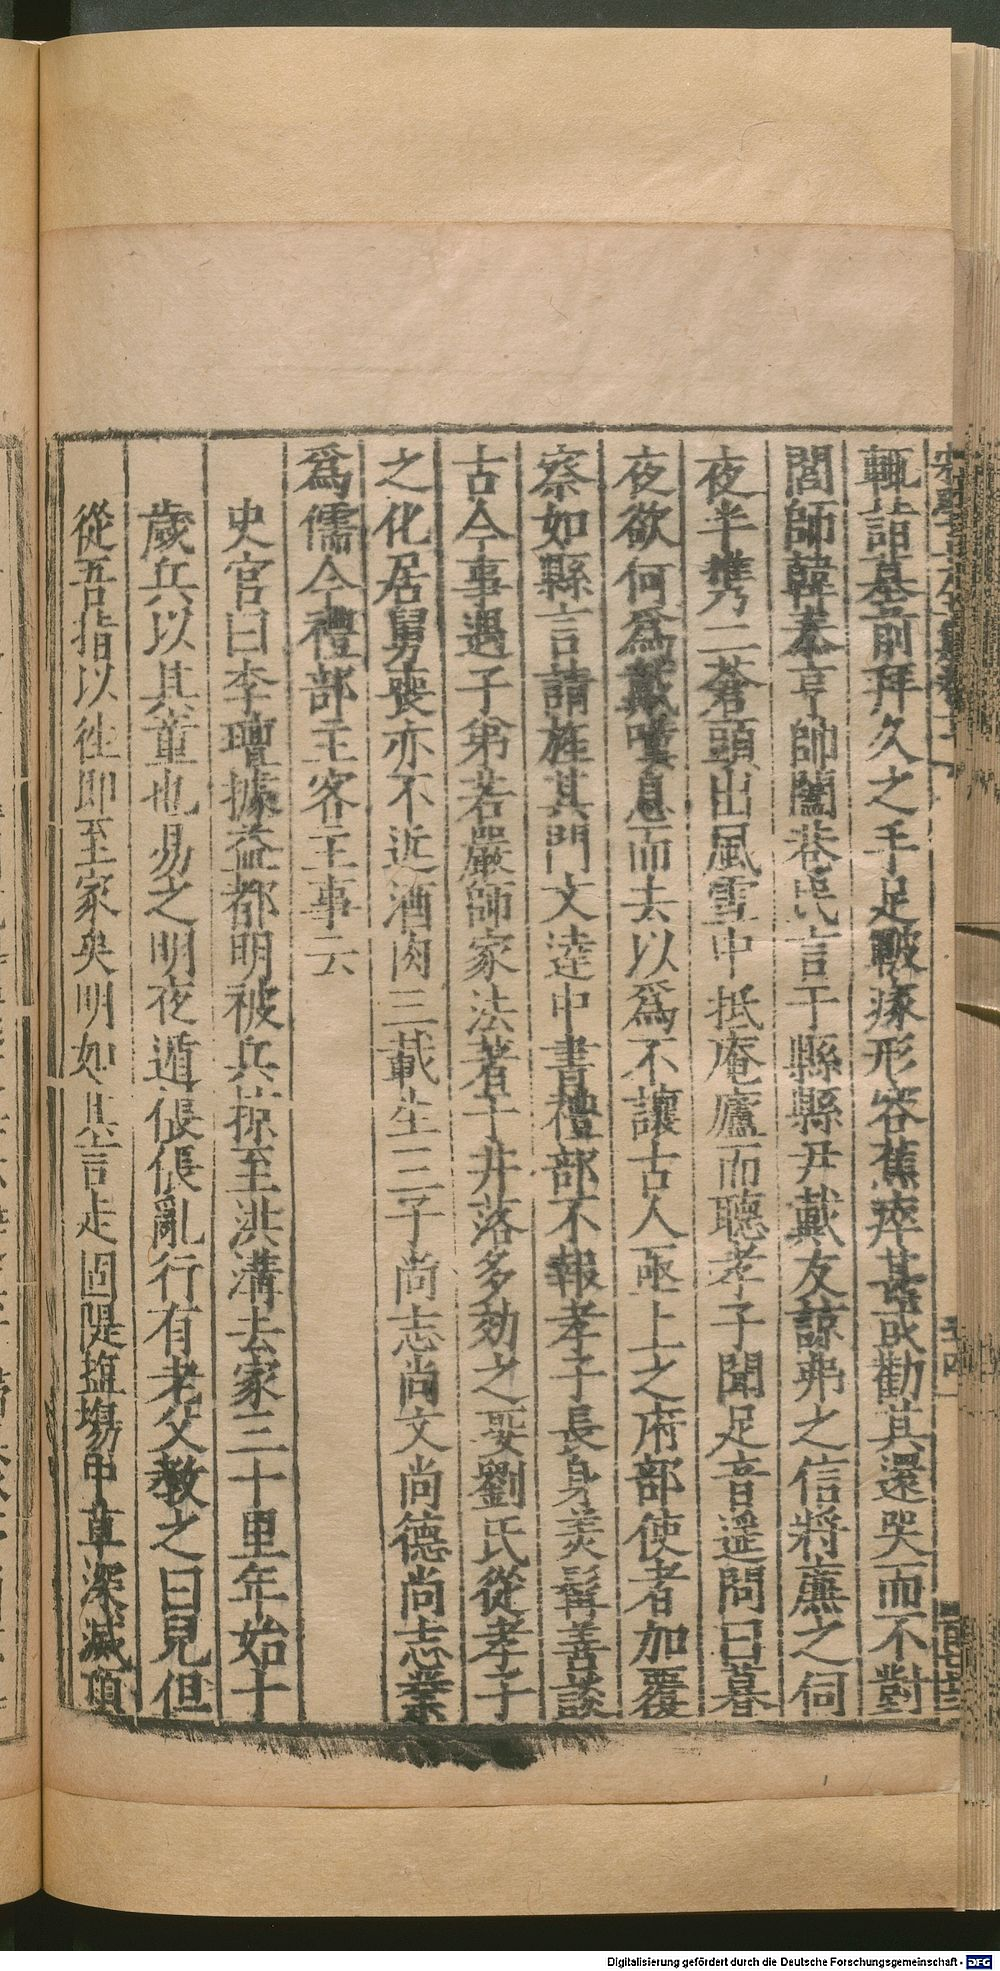 輒詣墓前拜久之手足皸瘃形容蕉瘁甚或勸其還哭而不對
閻師韓奉亨帥闔巷民言于縣縣尹戴友諒弗之信將廉之伺
夜半携二蒼頭出風雪中抵庵廬而聽孝子聞足音遥問曰暮
夜欲何爲戴嘆息而去以爲不讓古人亟上之府部使者加覆
察如縣言請旌其門文逹中書禮部不報孝子長身美髯善談
古今事遇子弟若嚴師家法著于井落多効之娶劉氏從孝子
之化居舅喪亦不近酒肉三載生三子尚志尚文尚德尚志業
爲儒今禮部主客主事云
史官曰李璮據益都明被兵掠至洪溝去家三十里年始十
歲兵以其童也易之明夜遁倀倀亂行有老父教之曰兒但
從吾指以徃即至家矣明如其言走固隄塩塲中草深滅頂
Digitalisierung gefördert durch die Deutsche Forschungsgemeinschaft - DFG